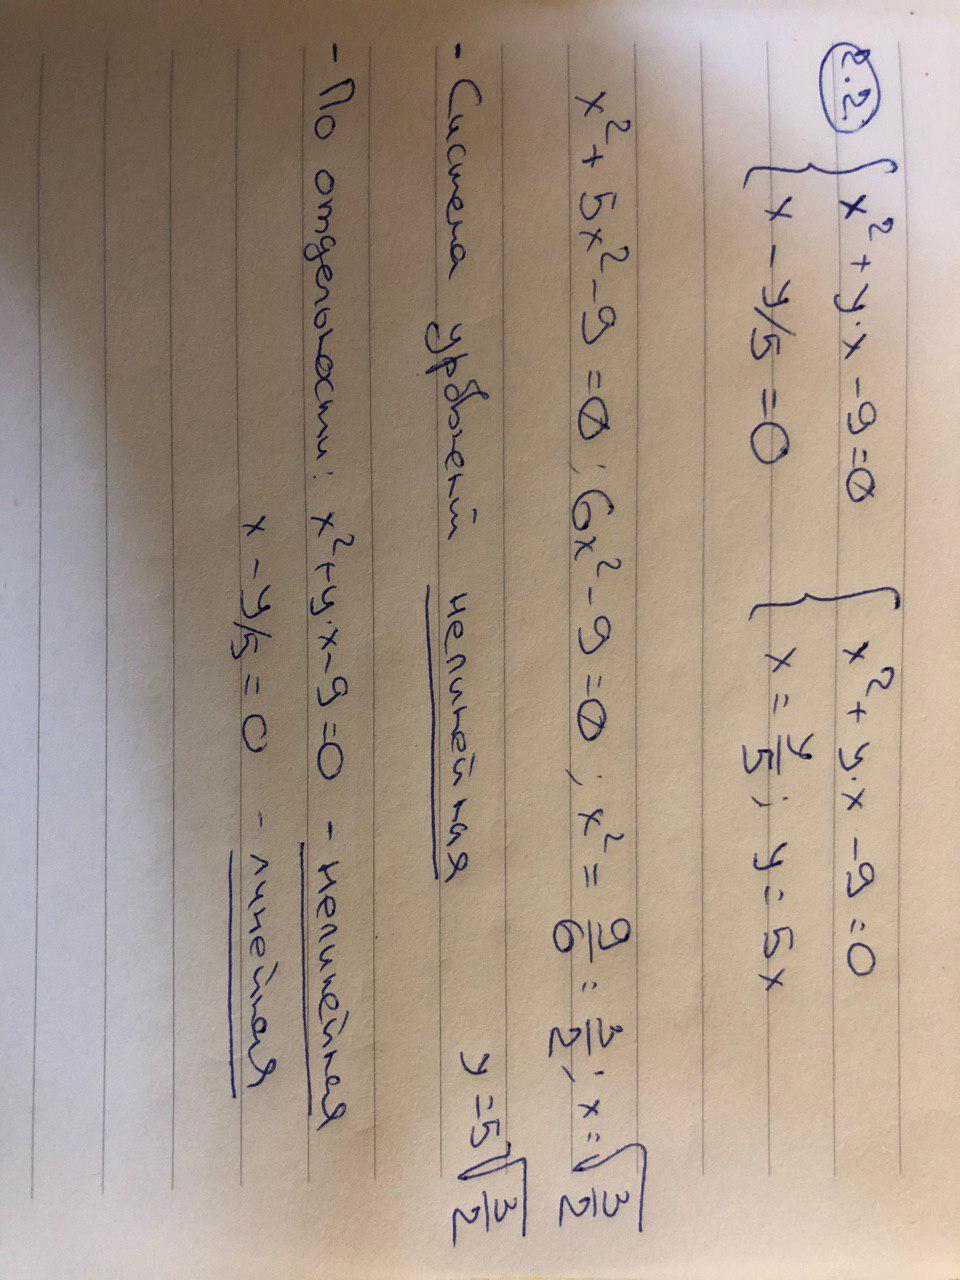 2.2. { x² + y·x - 9 = 0 { x² + y·x - 9 = 0
x - y/5 = 0 x = y/5 ; y = 5x
x² + 5x² - 9 = 0 ; 6x² - 9 = 0 ; x² = 9/6 = 3/2 ; x = √3/2
y = 5√3/2
- Система уравнений нелинейная
- По отдельности: x² + y·x - 9 = 0 - нелинейная
x - y/5 = 0 - линейная